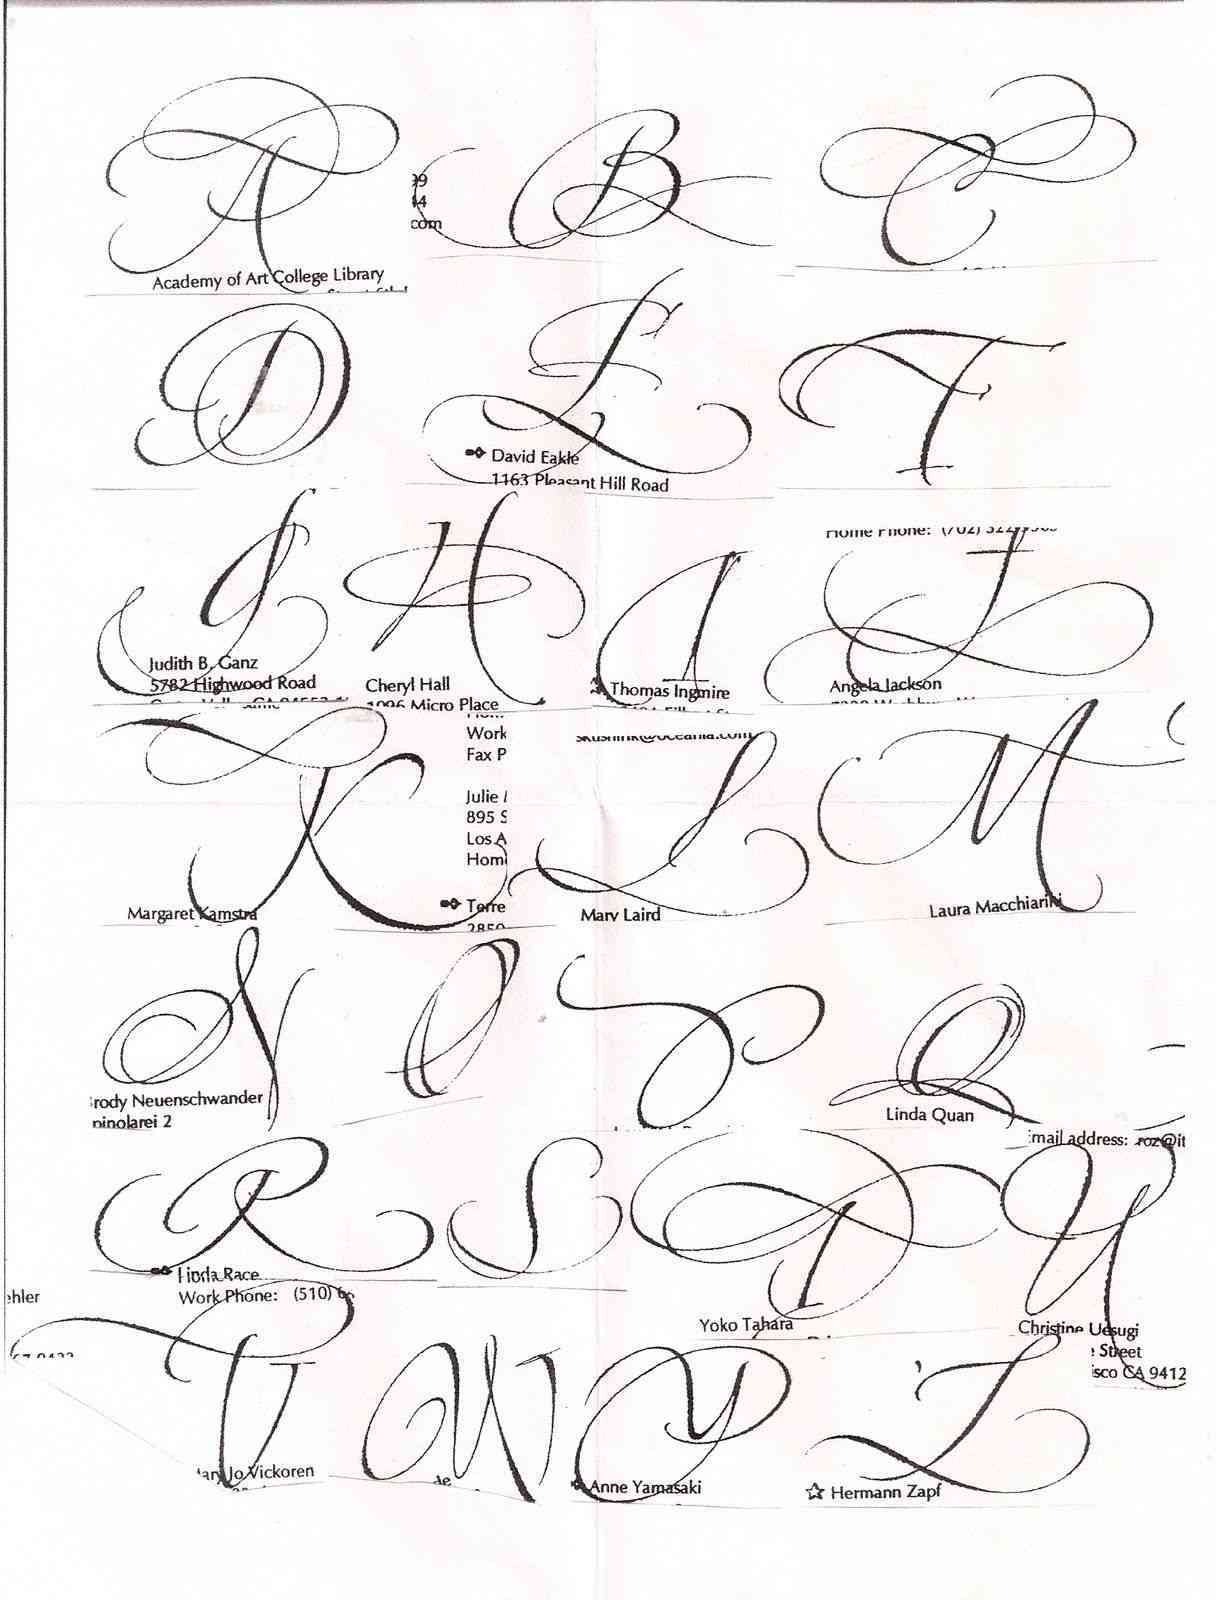 A B C
99
44
com
Academy of Art College Library
D E F
David Eakle
1163 Pleasant Hill Road
G H I J
Home Phone: (702) 322
Judith B. Ganz
5782 Highwood Road
Cheryl Hall
1096 Micro Place
Thomas Ingmire
Angela Jackson
K L M
Work
Fax P
skushnk@oceania.com
Julie
895 S
Los A
Hom
Margaret Kamstra
Terre
2850
Mary Laird
Laura Macchiarini
N O P Q
Brody Neuenschwander
pinolarei 2
Linda Quan
Email address: roz@it
R S T U
Linda Race
Work Phone: (510) 6
ehler
Yoko Tahara
Christine Uesugi
Street
isco CA 9412
V W Y Z
Mary Jo Vickoren
Anne Yamasaki
Hermann Zapf